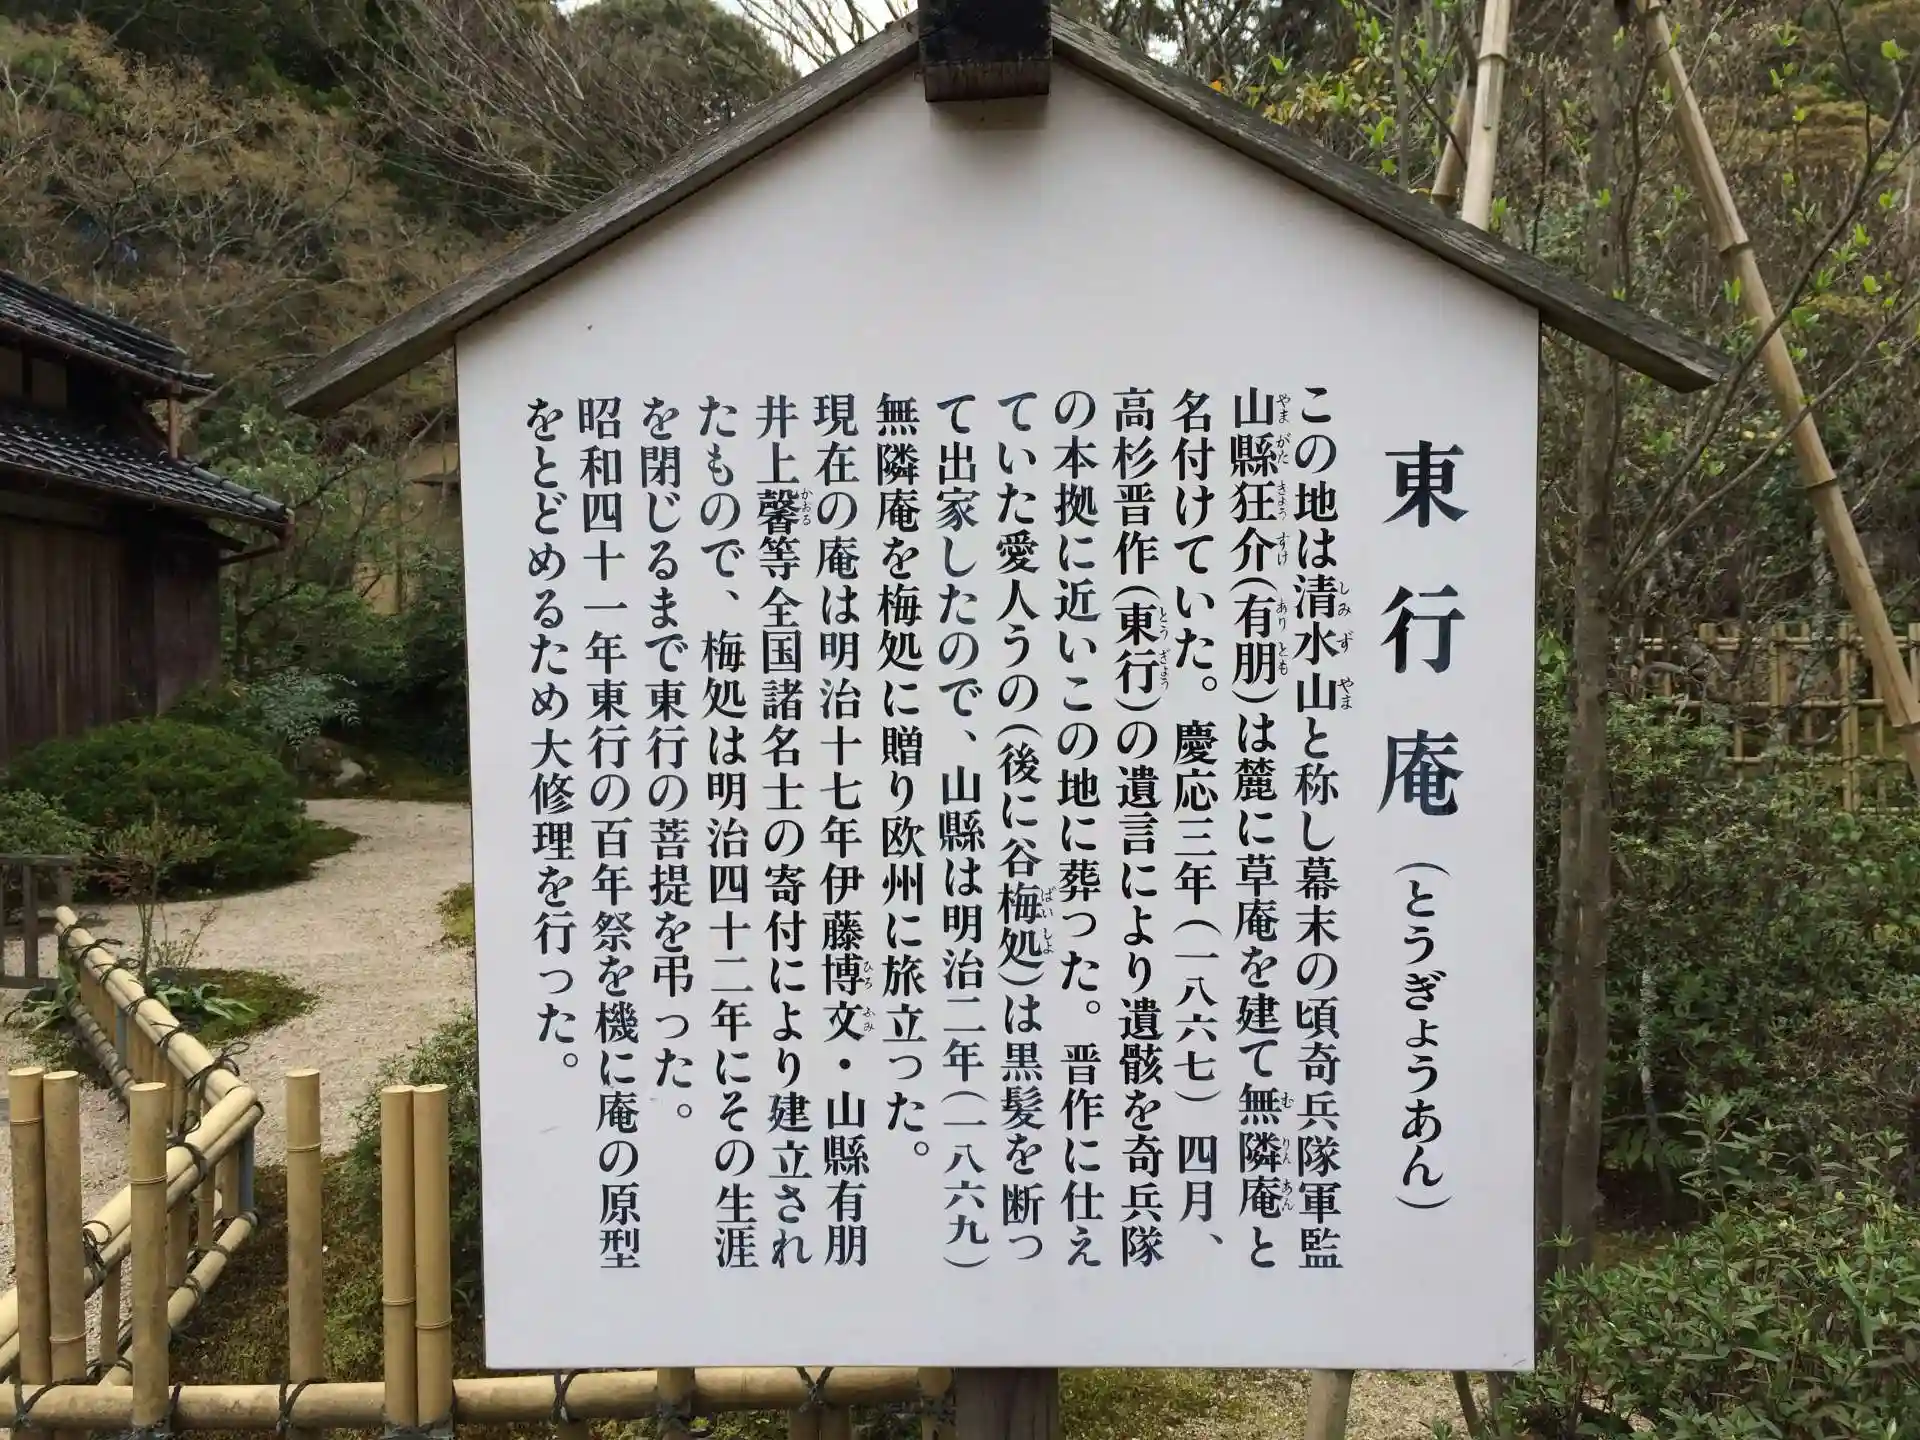 東行庵(とうぎょうあん)
この地は清水山と称し幕末の頃奇兵隊軍監
山縣狂介(有朋)は麓に草庵を建て無隣庵と
名付けていた。慶応三年(一八六七)四月、
高杉晋作(東行)の遺言により遺骸を奇兵隊
の本拠に近いこの地に葬った。晋作に仕え
ていた愛人うの(後に谷梅処)は黒髪を断っ
て出家したので、山縣は明治二年(一八六九)
無隣庵を梅処に贈り欧州に旅立った。
現在の庵は明治十七年伊藤博文・山縣有朋
井上馨等全国諸名士の寄付により建立され
たもので、梅処は明治四十二年にその生涯
を閉じるまで東行の菩提を弔った。
昭和四十一年東行の百年祭を機に庵の原型
をとどめるため大修理を行った。